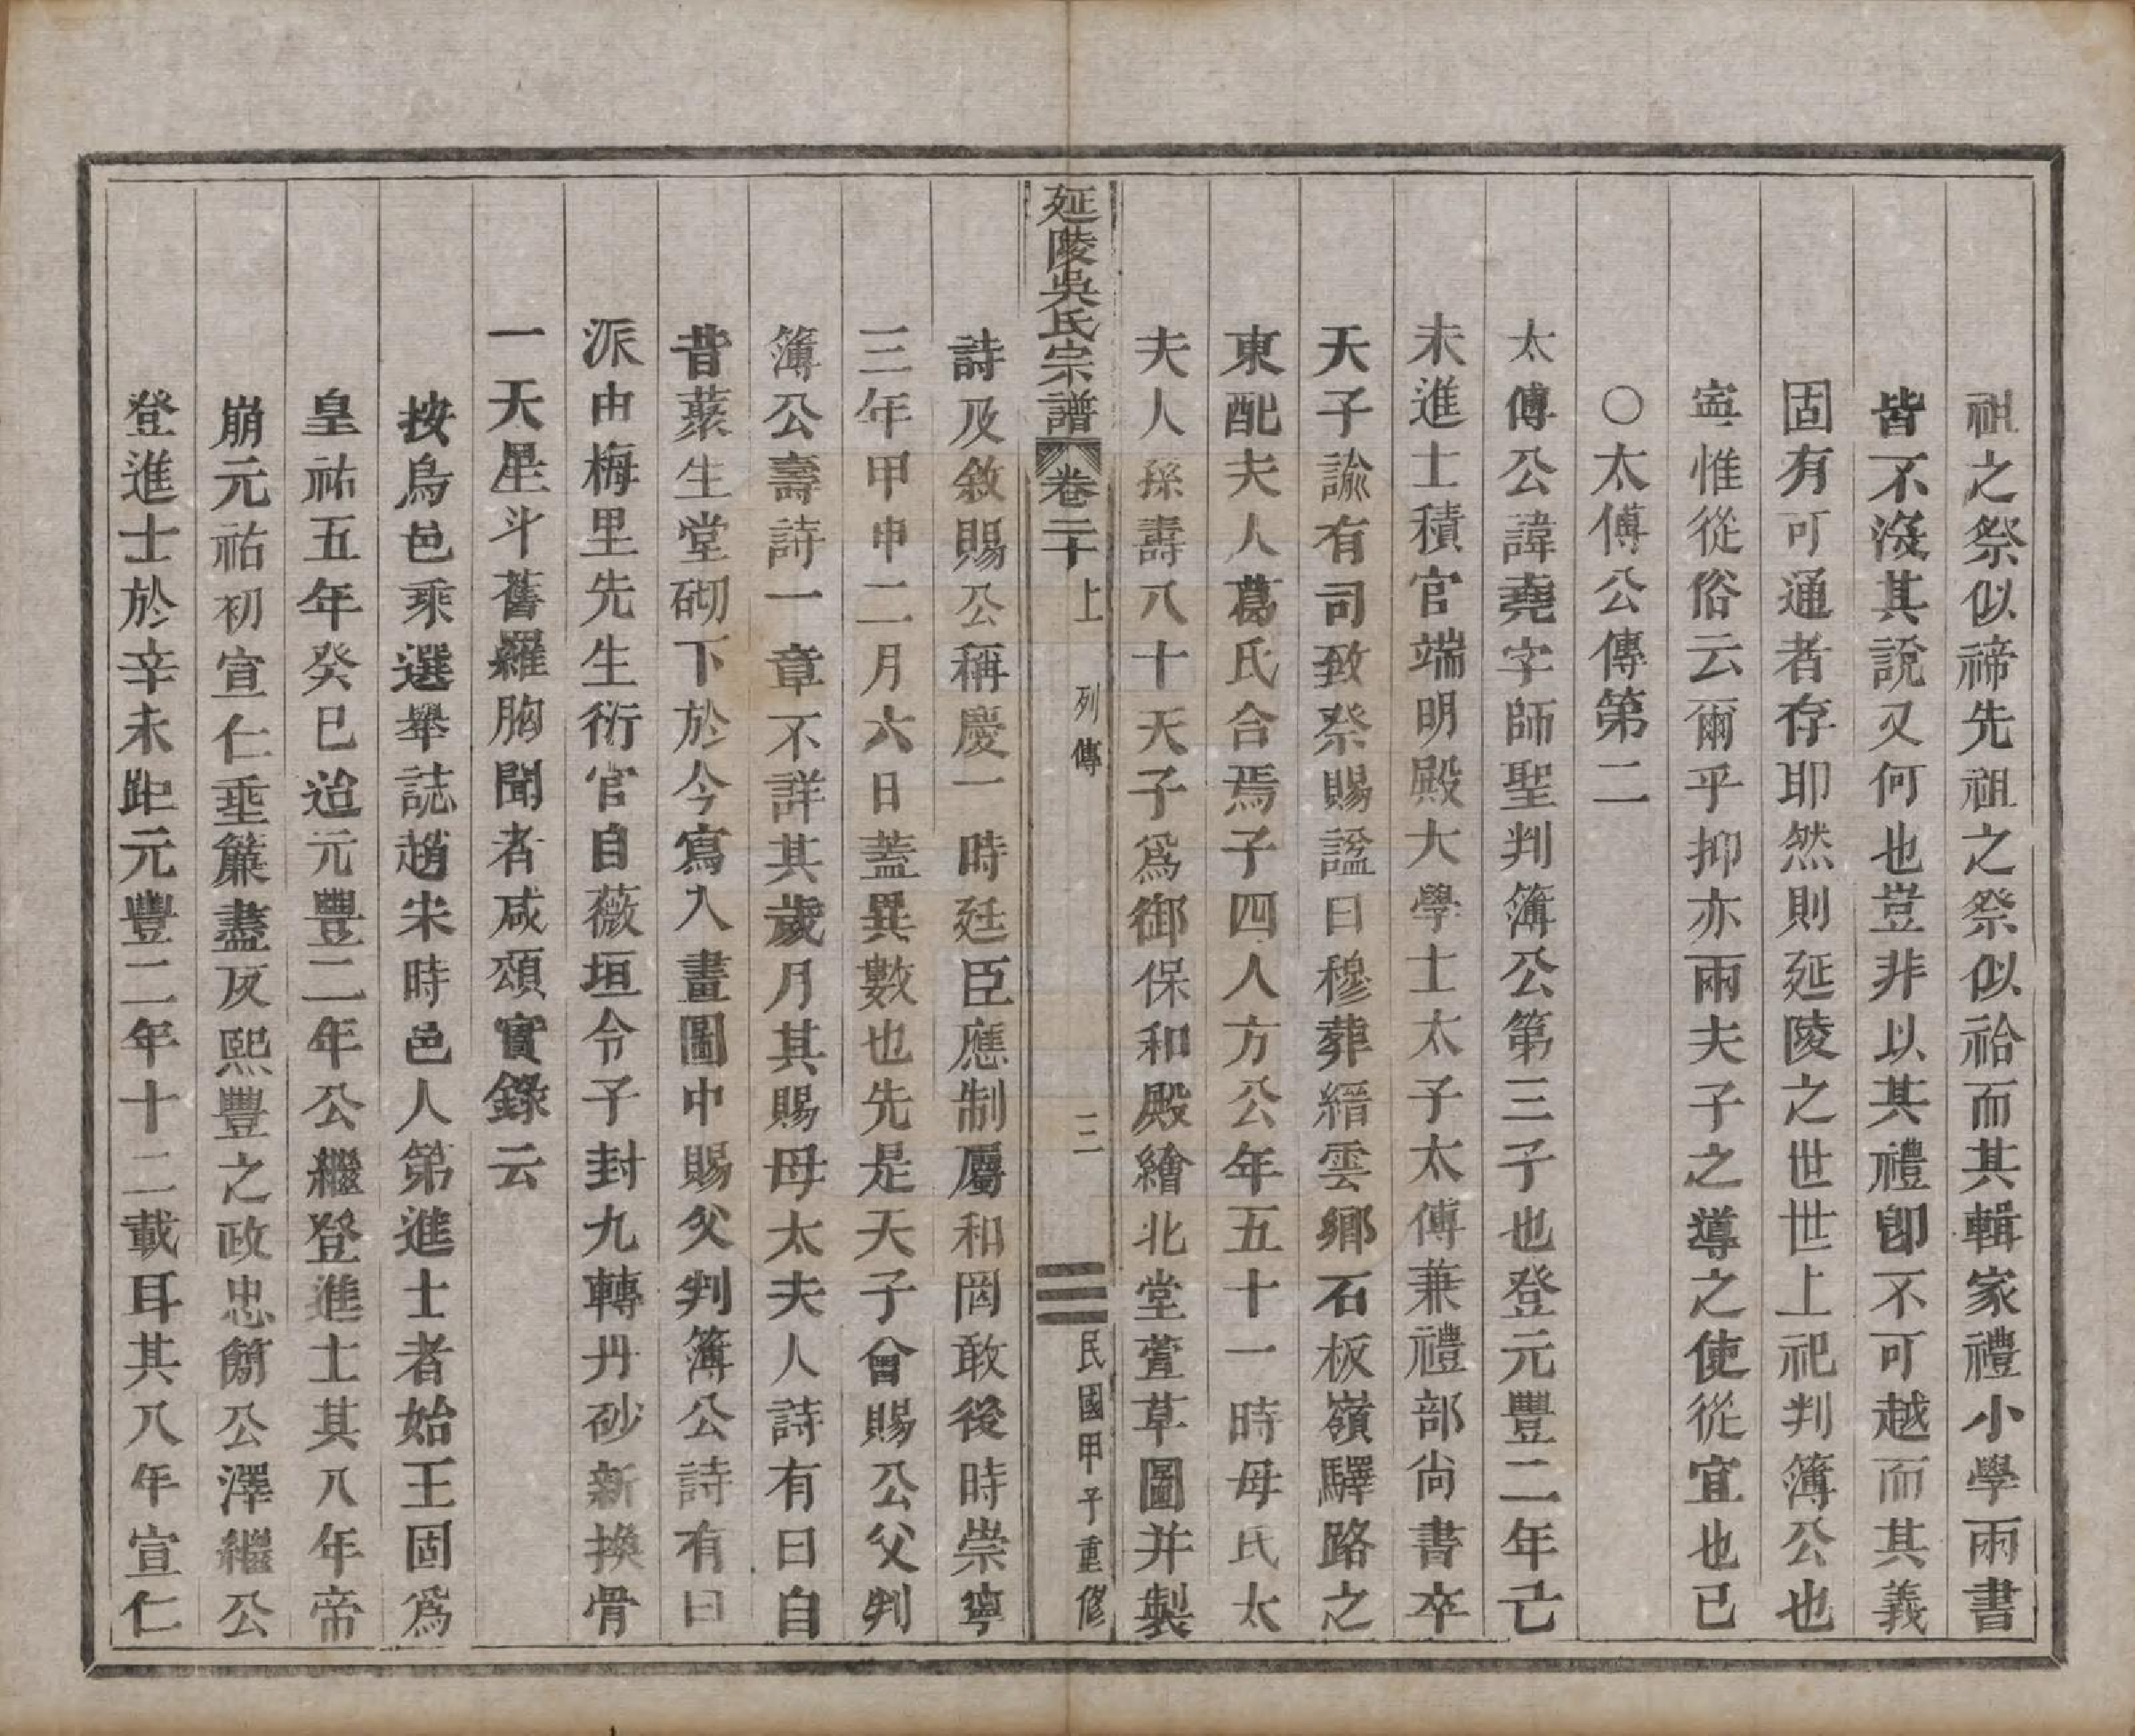 祖之祭似禘先祖之祭似祫而其輯家禮小學兩書
皆不淺其說又何也豈非以其禮卽不可越而其義
固有可通者存耶然則延陵之世世上祀判簿公也
寧惟從俗云爾乎抑亦兩夫子之導之使從宜也已
〇太傅公傳第二
太傅公諱堯字師聖判簿公第三子也登元豐二年己
未進士積官端明殿大學士太子太傅兼禮部尙書卒
天子諭有司致祭賜諡曰穆葬縉雲鄉石板嶺驛路之
東配夫人葛氏合焉子四人方公年五十一時母氏太
夫人孫壽八十天子爲御保和殿繪北堂萱草圖并製
延陵吳氏宗譜 卷二十上 列傳 三 民國甲子重修
詩及敘賜公稱慶一時廷臣應制屬和罔敢後時崇寧
三年甲申二月六日蓋異數也先是天子曾賜公父判
簿公壽詩一章不詳其歲月其賜母太夫人詩有曰自
昔蓀生堂砌下於今寫入畫圖中賜父判簿公詩有曰
派由梅里先生衍官自薇垣令子封九轉丹砂新換骨
一天星斗舊羅胸聞者咸頌實錄云
按烏邑乘選舉誌趙宋時邑人第進士者始王固爲
皇祐五年癸巳迨元豐二年公繼登進士其八年帝
崩元祐初宣仁垂簾盡反熙豐之政忠簡公澤繼公
登進士於辛未距元豐二年十二載耳其八年宣仁